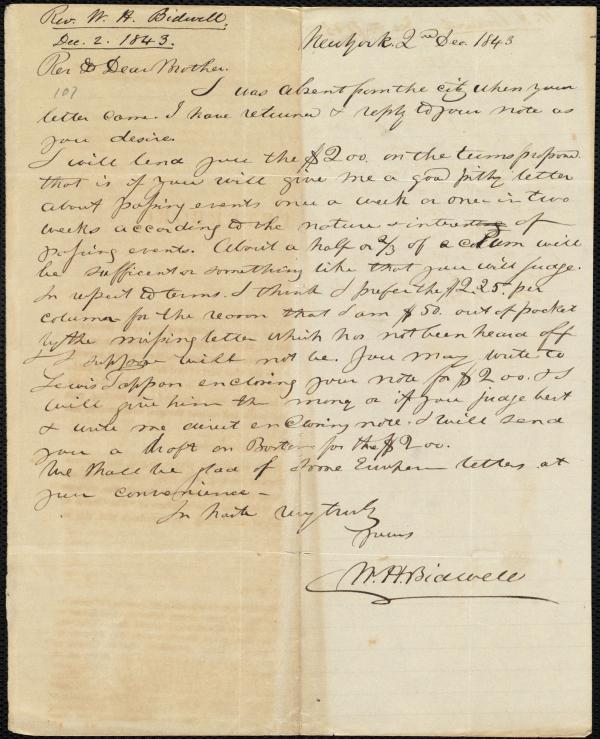 Rev. W. H. Bidwell,
Dec. 2. 1843.
New York. 2nd Dec. 1843
Rev & Dear Brother.
107
I was absent from the city when your
letter came. I have returned & reply to your note as
you desire.
I will lend you the $200. on the terms proposed
that is if you will give me a good pithy letter
about passing events once a week or once in two
weeks according to the nature & interest of
passing events. About a half or 2/3 of a column will
be sufficent or something like that you will judge.
In respect to terms. I think I prefer the $2.25. per
column for the reason that I am $50. out of pocket
by the missing letter which has not been heard off
& I suppose will not be. You may write to
Lewis Tappan enclosing your note for $200. & I
will give him the money or if you judge best
& write me direct enclosing note. I will send
you a draft on Boston for the $200.
We shall be glad of some European letters at
your convenience -
In haste very truly
yours
W. H. Bidwell